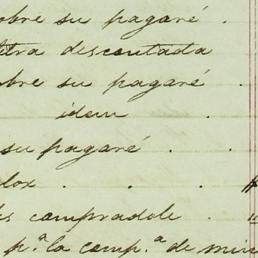 obre su pagaré .
etra descontada
obre su pagaré .
idem .
su pagaré .
lox . . .
es compradole .
p.ª la comp.ª de min